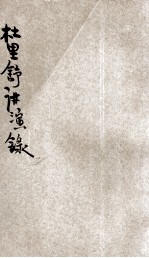 杜里舒讲演錄